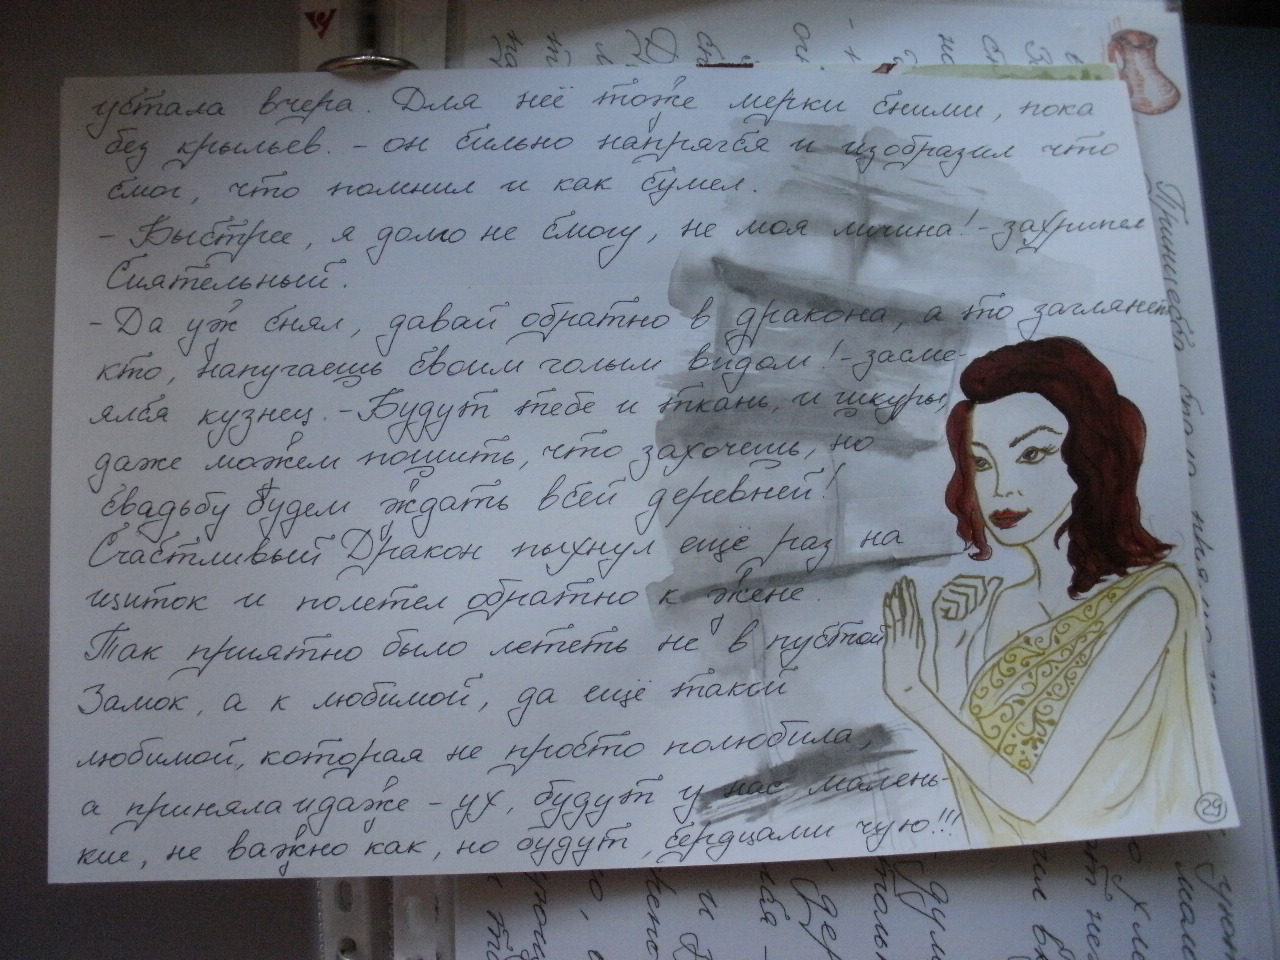 устала вчера. Для неё тоже мерки сними, пока
без крыльев. - он сильно напрягся и изобразил что
смог, что помнил и как сумел.
- Быстрее, я долго не смогу, не моя личина! - захрипел
Сиятельный.
- Да уж снял, давай обратно в дракона, а то заглянет
кто, напугаешь своим голым видом! - засме-
ялся кузнец. - Будут тебе и ткань, и шкуры,
даже можем пошить, что захочешь, но
свадьбу будем ждать всей деревней!
Счастливый Дракон пыхнул ещё раз на
щиток и полетел обратно к жене.
Так приятно было лететь не в пустой
Замок, а к любимой, да ещё такой
любимой, которая не просто полюбила,
а приняла и даже - ух, будут у нас малень-
кие, не важно как, но будут, сердцами чую!!!
29